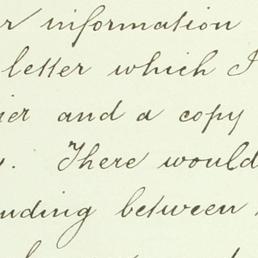 r information
letter which I
ier and a copy
y. There would
nding between